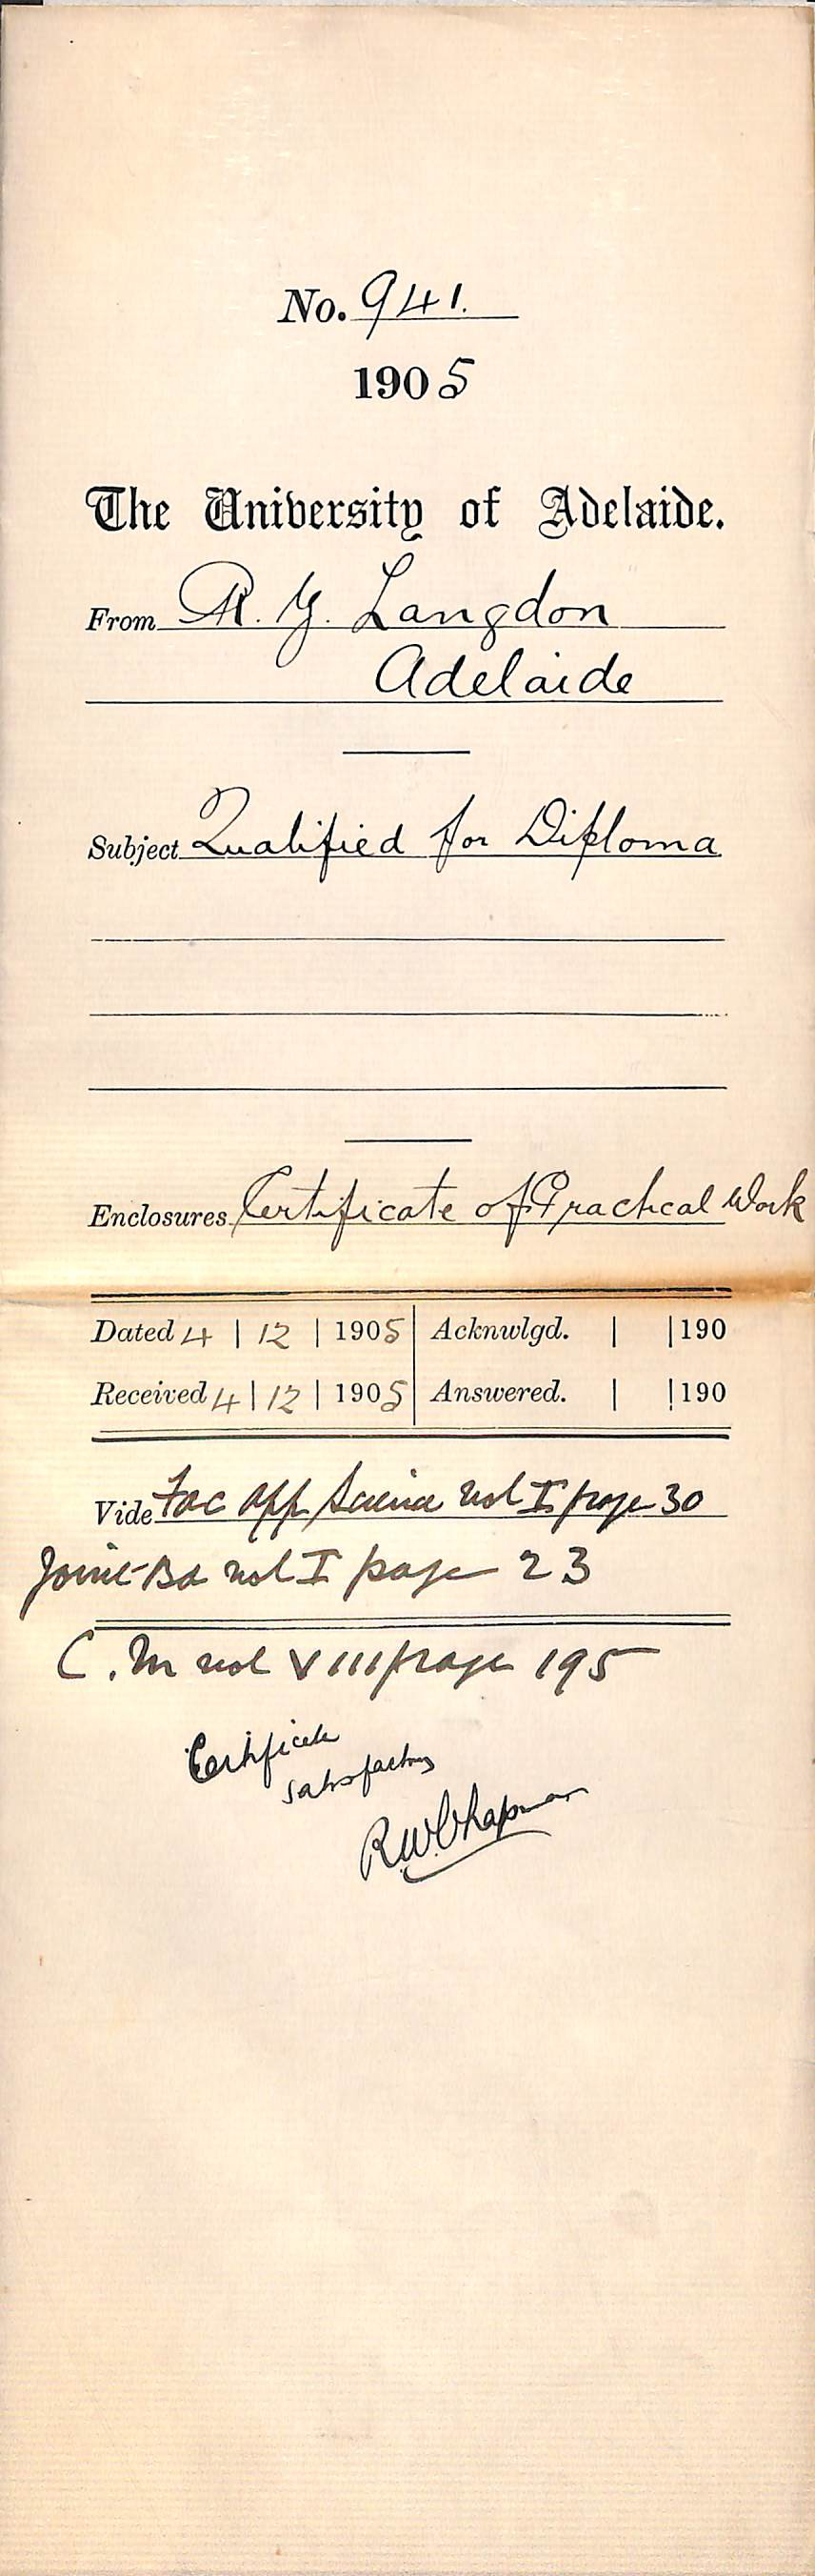 No. 941.
1905
The University of Adelaide.
From R. Y. Langdon
Adelaide
Subject Qualified for Diploma
Enclosures Certificate of Practical Work
Dated 4 | 12 | 1905 | Acknwlgd. | | 190
Received 4 | 12 | 1905 | Answered. | | 190
Vide Fac App Science vol I page 30
Joint Bd vol I page 23
C. M vol VIII page 195
Certificate
satisfactory
R.W. Chapman